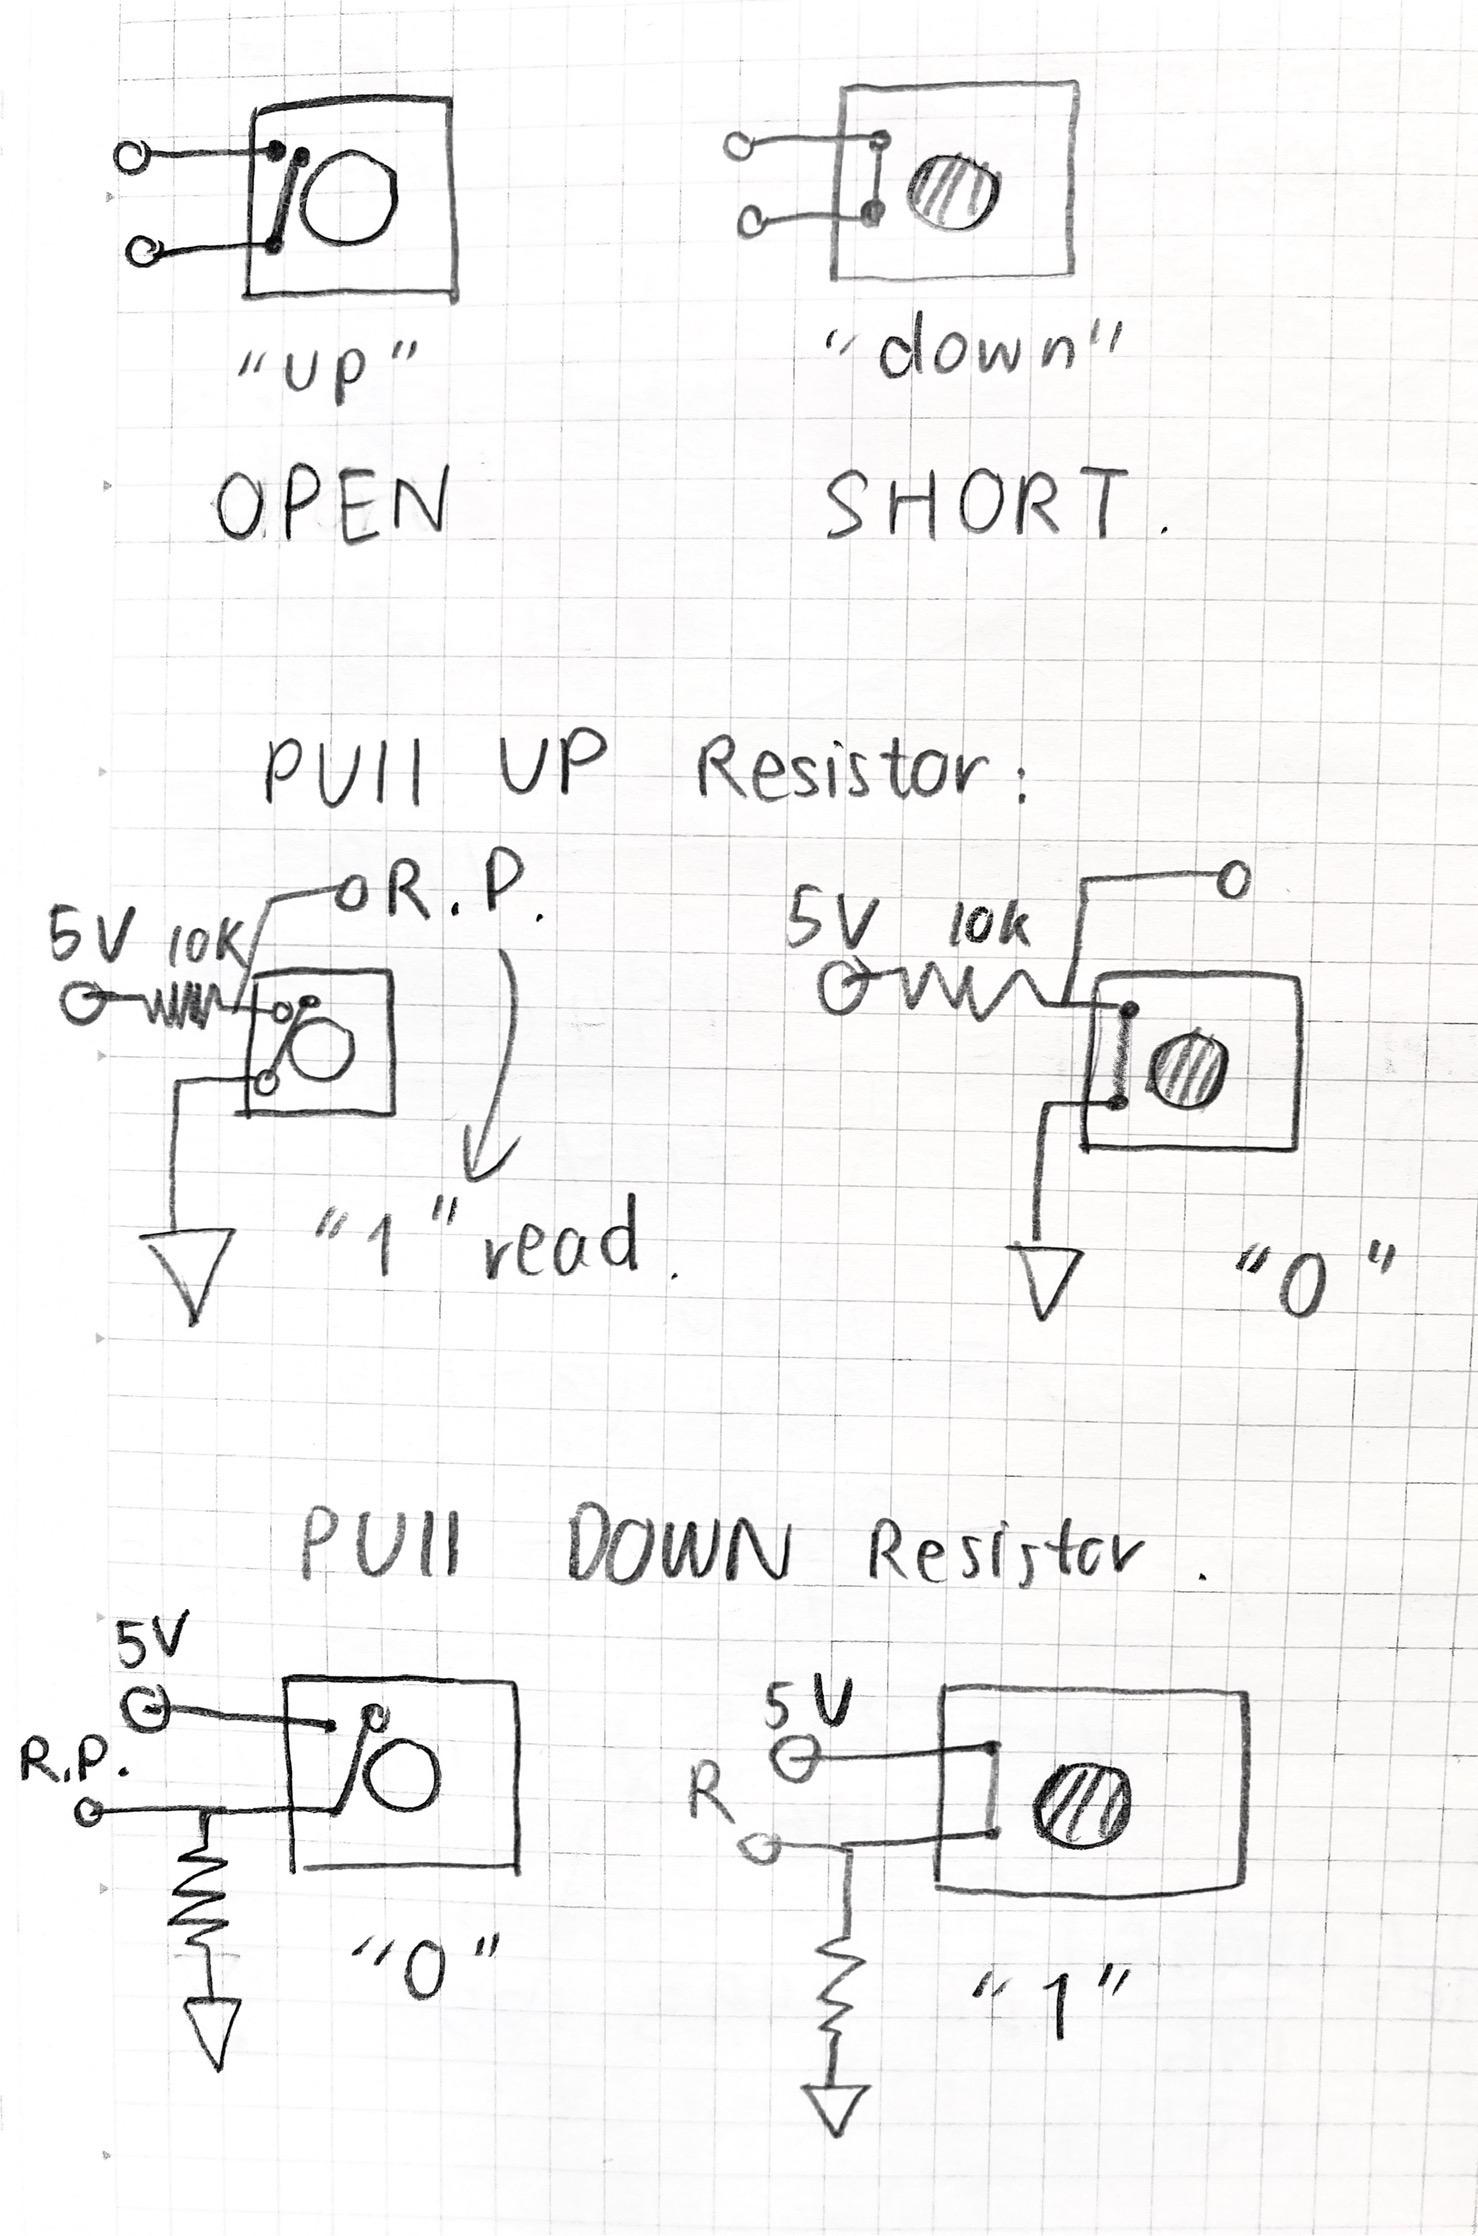 "up"
"down"
OPEN
SHORT.
PUll UP Resistor:
R.P.
5V 10K
5V 10k
"1" read.
"0"
PUll DOWN Resistor.
5V
R.P.
5V
R
"0"
"1"